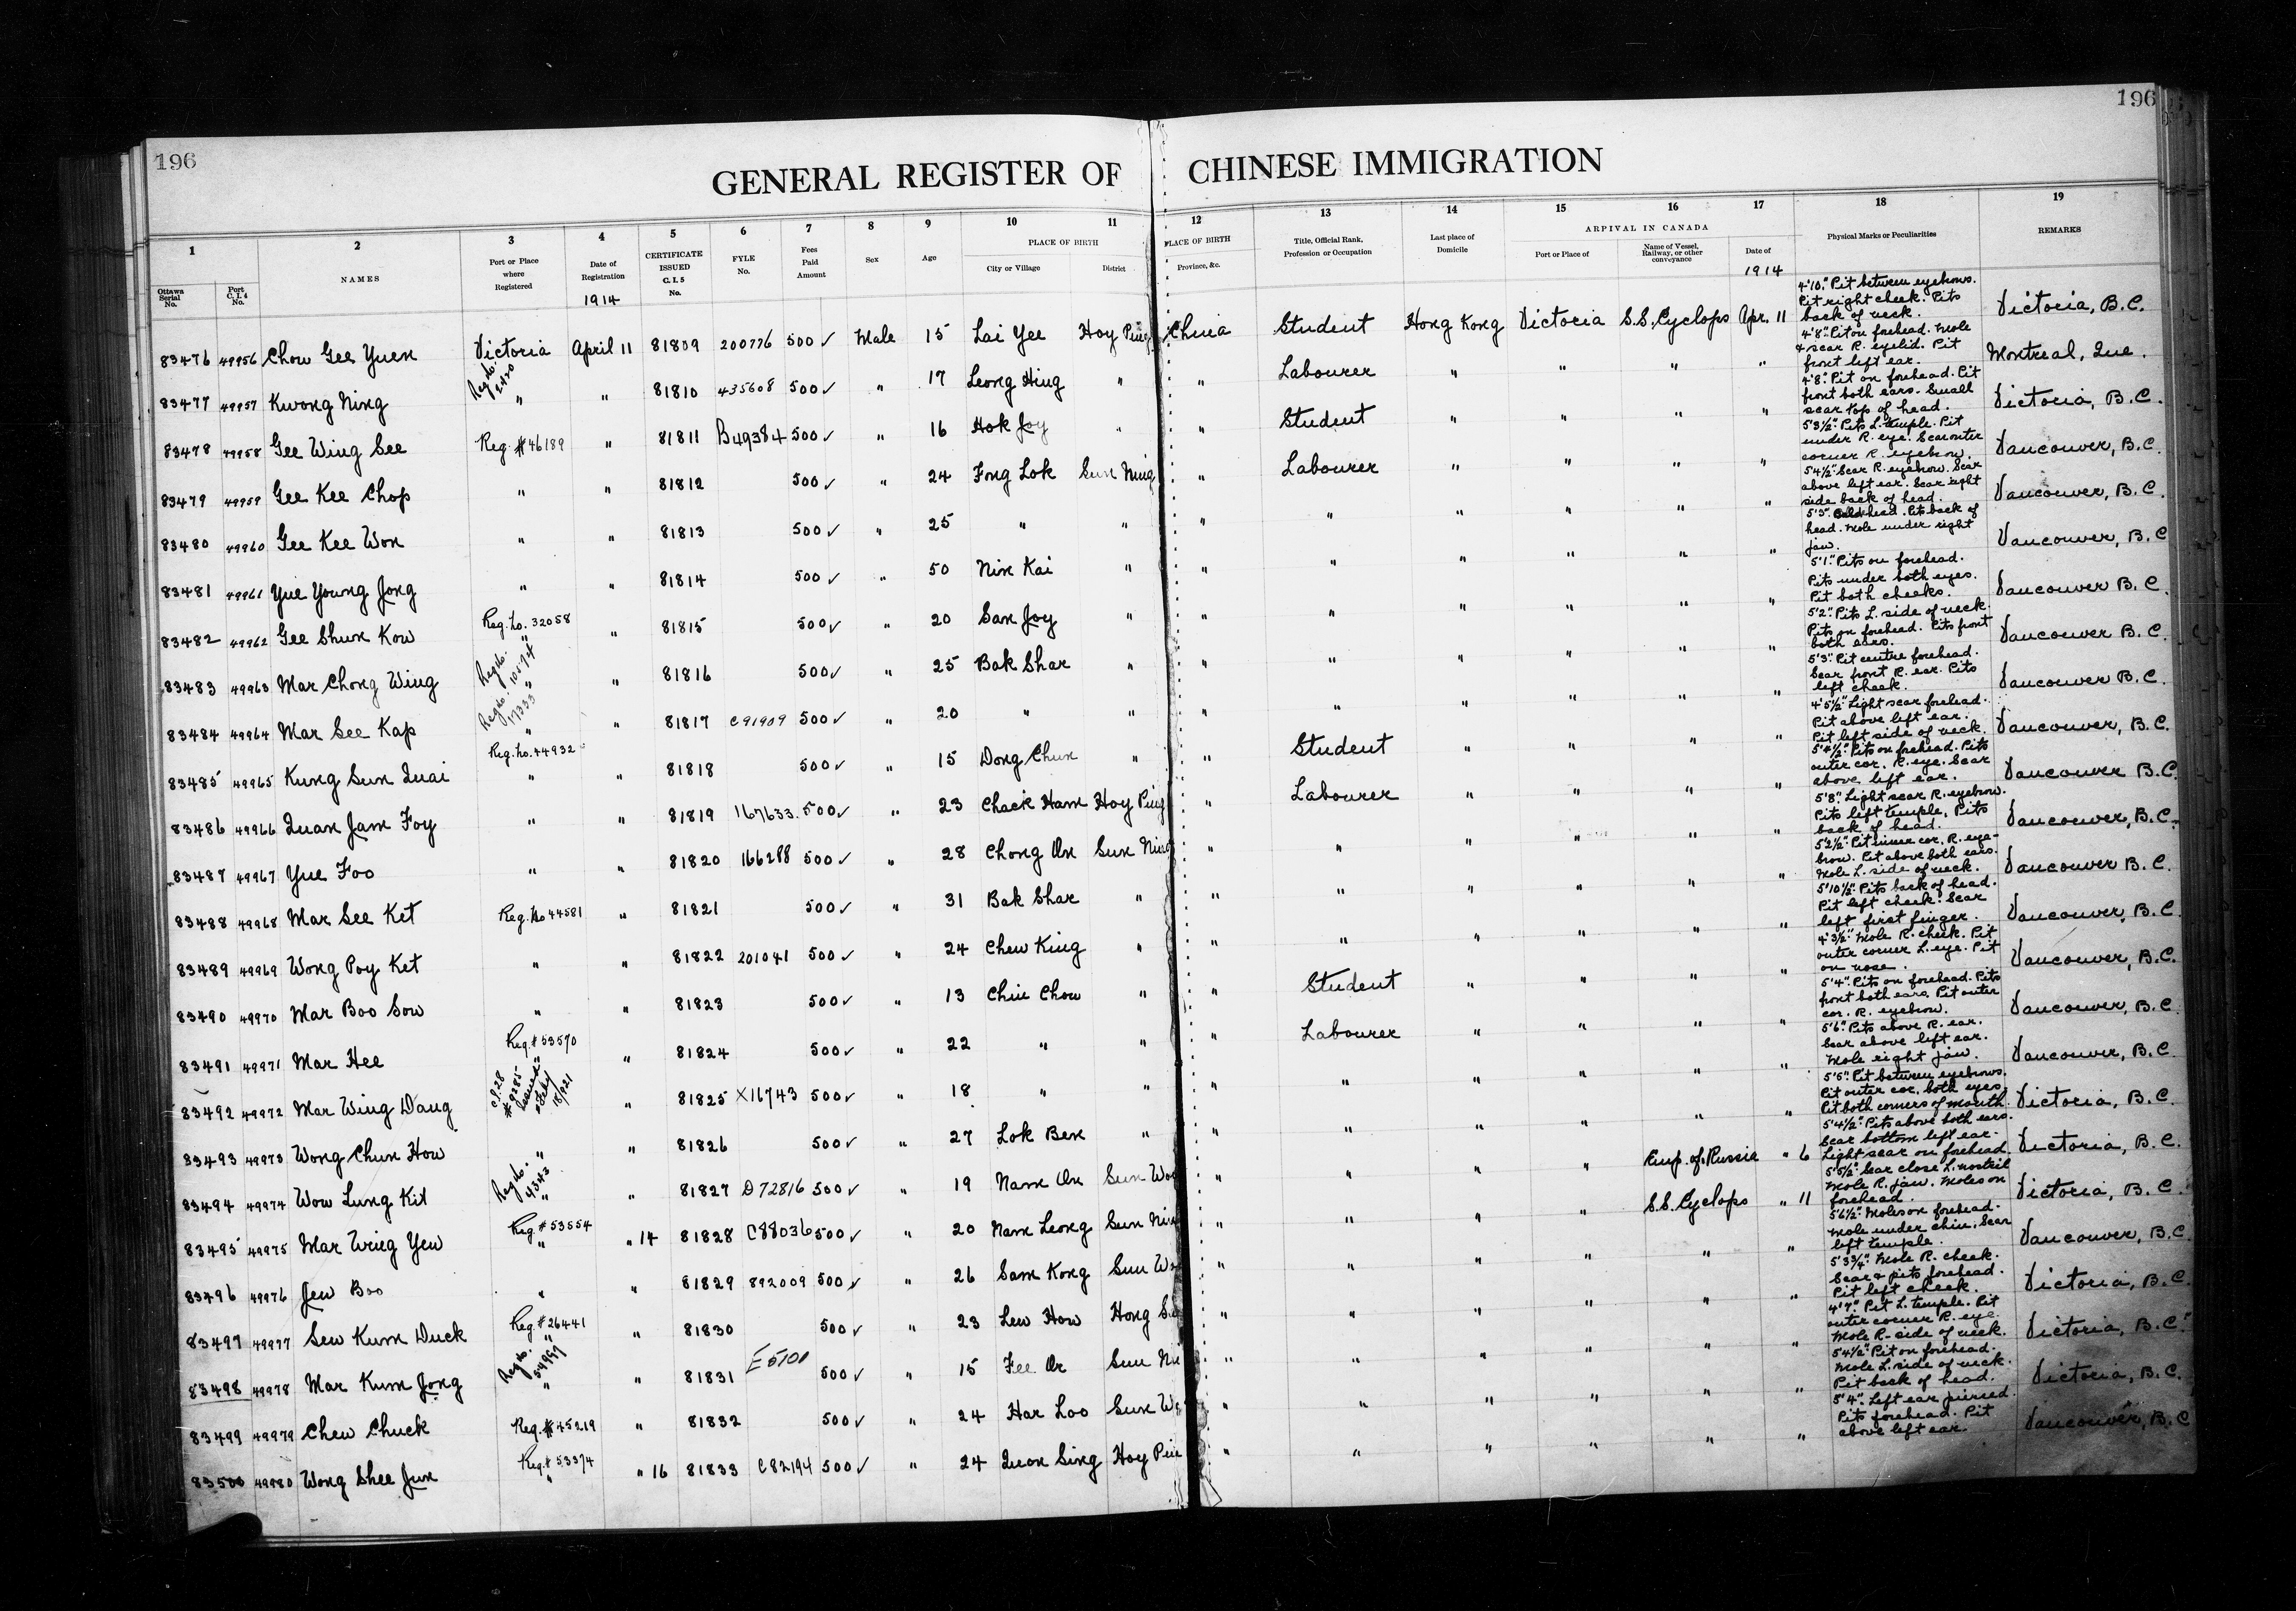 196 196
GENERAL REGISTER OF CHINESE IMMIGRATION
1 2 3 4 5 6 7 8 9 10 11 12 13 14 15 16 17 18 19
Ottawa Serial No. Port C.I. 4 No. NAMES Port or Place where Registered Date of Registration CERTIFICATE ISSUED C.I. 5 No. FYLE No. Fees Paid Amount Sex Age PLACE OF BIRTH City or Village District PLACE OF BIRTH Province, &c. Title, Official Rank, Profession or Occupation Last place of Domicile ARRIVAL IN CANADA Port or Place of Name of Vessel, Railway, or other conveyance Date of Physical Marks or Peculiarities REMARKS
1914 1914
83476 49956 Chow Gee Yuen Victoria April 11 81809 200776 500 ✓ Male 15 Lai Yee Hoy Ping China Student Hong Kong Victoria S.S. Cyclops Apr. 11 4'10". Pit between eyebrows. Pit right cheek. Pits back of neck. Victoria, B.C.
83477 49957 Kwong Ning Reg. No. 2420 " " 81810 435608 500 ✓ " 17 Leong Hing " " Labourer " " " " 4'8". Pit on forehead. Mole & scar R. eyelid. Pit front left ear. Montreal, Que.
83478 49958 Gee Wing See Reg. # 46189 " 81811 B49384 500 ✓ " 16 Hok Joy " " Student " " " " 4'8". Pit on forehead. Pit front both ears. Small scar top of head. Victoria, B.C.
83479 49959 Gee Kee Chop " " 81812 500 ✓ " 24 Fong Lok Sun Ning " Labourer " " " " 5'3½". Pits L. temple. Pit under R. eye. Scar outer corner R. eyebrow. Vancouver, B.C.
83480 49960 Gee Kee Won " " 81813 500 ✓ " 25 " " " " " " " " 5'4½". Scar R. eyebrow. Scar above left ear. Scar right side back of head. Vancouver, B.C.
83481 49961 Yue Young Jong " " 81814 500 ✓ " 50 Nin Kai " " " " " " " 5'3". Bald head. Pits back of head. Mole under right jaw. Vancouver, B.C
83482 49962 Gee Shun Kow Reg. No. 32058 " " 81815 500 ✓ " 20 San Joy " " " " " " " 5'1". Pits on forehead. Pits under both eyes. Pit both cheeks. Vancouver B.C.
83483 49963 Mar Chong Wing Reg. No. 10174 " " 81816 500 ✓ " 25 Bak Shar " " " " " " " 5'2". Pits L. side of neck. Pits on forehead. Pits front both ears. Vancouver B.C.
83484 49964 Mar See Kap Reg. No. 17333 " " 81817 C91909 500 ✓ " 20 " " " " " " " " 5'3". Pit centre forehead. Scar front R. ear. Pits left cheek. Vancouver B.C.
83485 49965 Kung Sun Quai Reg. No. 44932 " " 81818 500 ✓ " 15 Dong Chun " " Student " " " " 4'5½" Light scar forehead. Pit above left ear. Pit left side of neck. Vancouver, B.C.
83486 49966 Quan Jam Foy " " 81819 167633. 500 ✓ " 23 Chack Ham Hoy Ping " Labourer " " " " 5'4½". Pits on forehead. Pits outer cor. R. eye. Scar above left ear. Vancouver B.C.
83487 49967 Yue Foo " " 81820 166288 500 ✓ " 28 Chong On Sun Ning " " " " " " 5'8". Light scar R. eyebrow. Pits left temple. Pits back of head. Vancouver, B.C.
83488 49968 Mar See Ket Reg. No 44581 " 81821 500 ✓ " 31 Bak Shar " " " " " " " 5'2½". Pit inner cor. R. eyebrow. Pit above both ears. Mole L. side of neck. Vancouver B.C.
83489 49969 Wong Poy Ket " " 81822 201041 500 ✓ " 24 Chew King " " " " " " " 5'10½". Pits back of head. Pit left cheek. Scar left first finger. Vancouver, B.C.
83490 49970 Mar Boo Sow " " 81823 500 ✓ " 13 Chiu Chow " " Student " " " " 4'3½". Mole R. cheek. Pit outer corner L. eye. Pit on nose. Vancouver, B.C.
83491 49971 Mar Hee Reg. # 53570 " " 81824 500 ✓ " 22 " " " Labourer " " " " 5'4". Pits on forehead. Pits front both ears. Pit outer cor. R. eyebrow. Vancouver, B.C
83492 49972 Mar Wing Dang C.I. 28 # 9285 " 81825 X16743 500 ✓ " 18 " " " " " " " " 5'6". Pits above R. ear. Scar above left ear. Mole right jaw. Vancouver, B.C.
83493 49973 Wong Chun How " " 81826 500 ✓ " 27 Lok Ben " " " " " " " 5'5". Pit between eyebrows. Pit outer cor. both eyes. Pit both corners of mouth. Victoria, B.C.
83494 49974 Wow Lung Kit Reg No. 4343 " " 81827 D72816 500 ✓ " 19 Nam On Sun Woo " " " " Emp. of Russia " 6 5'4½". Pits above both ears. Scar bottom left ear. Light scar on forehead. Victoria, B.C.
83495 49975 Mar Wing Yew Reg. # 53554 " " 14 81828 C88036 500 ✓ " 20 Nam Leong Sun Nin " " " " S.S. Cyclops " 11 5'5½". Scar close L. nostril Mole R. jaw. Moles on forehead. Victoria, B.C.
83496 49976 Jew Boo " " 81829 892009 500 ✓ " 26 Sam Kong Sun Wo " " " " " " 5'6½". Moles on forehead. Mole under chin. Scar left temple. Vancouver, B.C.
83497 49977 Sew Kum Duck Reg. # 26441 " " 81830 500 ✓ " 23 Lew How Hong S " " " " " " 5'3¾". Mole R. cheek. Scar & pits forehead. Pit left cheek. Victoria, B.C.
83498 49978 Mar Kum Jong Reg No. 54999 " " 81831 E5100 500 ✓ " 15 Fee On Sun Nin " " " " " " 4'7". Pit L. temple. Pit outer corner R. eye. Mole R. side of neck. Victoria, B.C.
83499 49979 Chew Chuck Reg. # 45219 " 81832 500 ✓ " 24 Har Loo Sun W " " " " " " 5'4½". Pit on forehead. Mole L. side of neck. Pit back of head. Victoria, B.C.
83500 49980 Wong Shee Jun Reg. # 53374 " " 16 81833 C82194 500 ✓ " 24 Quon Sing Hoy Pin " " " " " " 5'4". Left ear pierced. Pits forehead. Pit above left ear. Vancouver, B.C